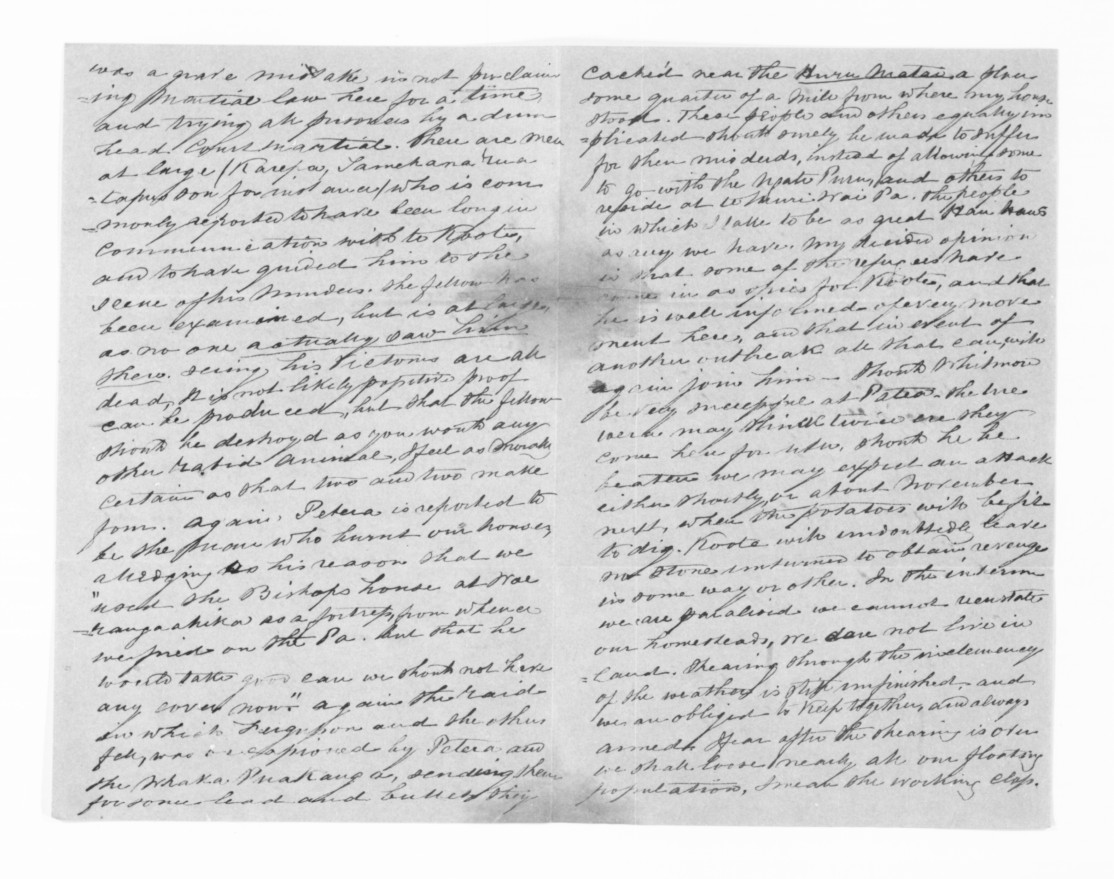 was a grave mistake in not proclaim
=ing martial law here for a time,
and trying all prisoners by a drum
head Court martial. There are men
at large (Karepa, Tamehana Rua
=tapu's son for instance) who is com
=monly reported to have been long in
communication with te Kooti,
and to have guided him to the
scene of his murders. The fellow has
been examined, but is at large,
as no one actually saw him
there. seeing his victims are all
dead, It is not likely positive proof
can be produced, but that the fellow
should be destroyd as you would any
other rabid animal, I feel as morally
certain as that two and two make
four. Again, Petera is reported to
be the man who burnt our houses,
alledging as his reason that we
"used the Bishops house at Wae
=rangaahika as a fortress, from whence
we fired on the Pa. but that he
would take good care we should not have
any cover now" again the raid
in which Fergusson and the others
fell, was occasioned by Petera and
the Whaka Puakanga, sending them
for some lead and bullets they
cached near the Huru Matai a place
some quarter of a mile from where my house
stood. These people and others equally im
=plicated should surely be made to suffer
for their misdeeds, instead of allowing some
to go with the Ngate Puru, and others to
reside at to Wai Pa. the people
in which I take to be as great Hau Haus
as any we have. My decided opinion
is that some of the refugees have
come in as spies for Kooti, and that
he is well informed of every move
ment here, and that in event of
another outbreak all that can, will
again join him — Should Whitmore
be very successful at the
may think twice ere they
come here for utu, should he be
beaten we may expect an attack
either shortly, or about November
next, when the potatoes will be fit
to dig. Koote will undoubtedly leave
no stone unturned to obtain revenge
in some way or other. In the interim
we are paralised we cannot reinstate
our homesteads, we dare not live in
=land. Shearing through the inclemency
of the weather is still unfinished, and
we are obliged to keep together, and always
armed. I fear after the shearing is over
we shall loose nearly all our floating
population, I mean the working class.